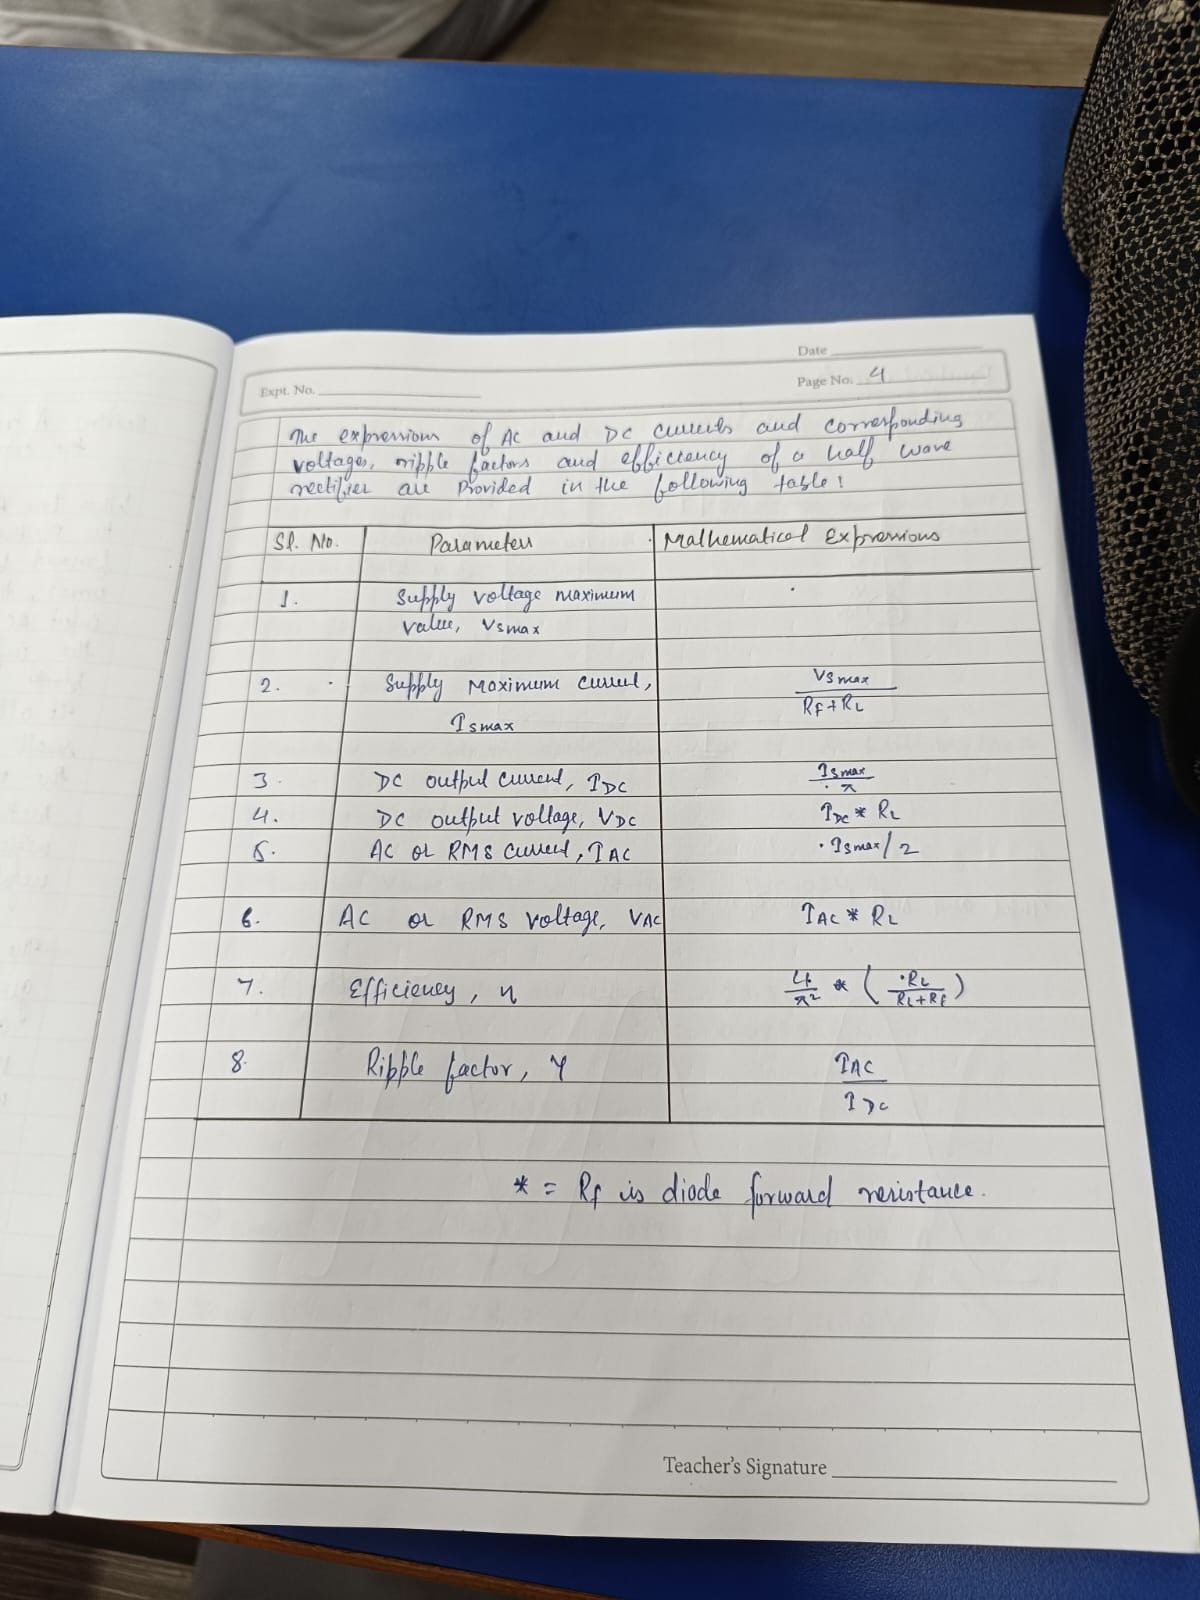 Date
Expt. No.
Page No. 4
The expressions of AC and DC currents and corresponding
voltages, ripple factors and efficiency of a half wave
rectifier are provided in the following table:
Sl. No. Parameters Mathematical Expressions
1. Supply voltage maximum
value, Vsmax
2. Supply Maximum Current, Vsmax / RF + RL
Ismax
3. DC output current, IDC Ismax / π
4. DC output voltage, VDC IDC * RL
5. AC or RMS Current, IAC Ismax/2
6. AC or RMS voltage, VAC IAC * RL
7. Efficiency, η 4/π² * (RL / RL+RF)
8. Ripple factor, γ IAC / IDC
* = Rf is diode forward resistance.
Teacher's Signature